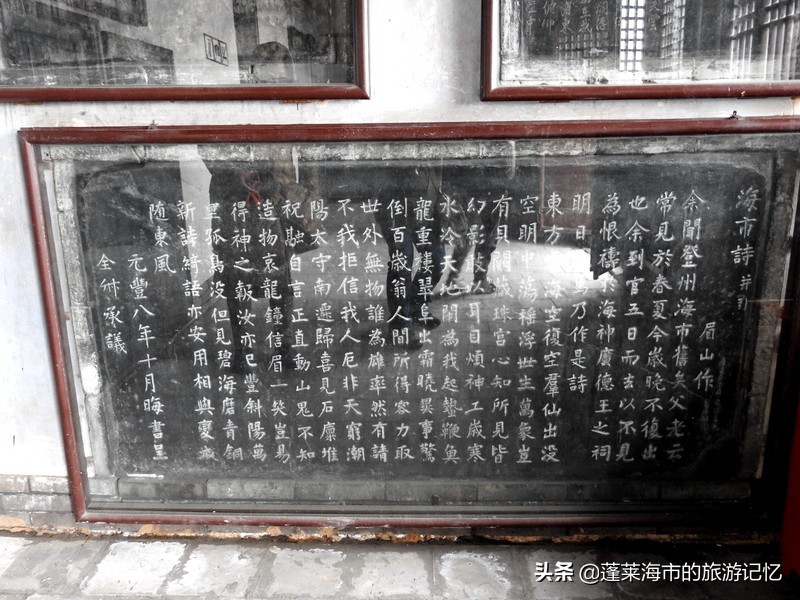 海市詩 并引
眉山作
余聞登州海市舊矣父老云
常見於春夏今歲晚不復出
也余到官五日而去以不見
為恨禱於海神廣德王之祠
明日焉乃作是詩
東方海空復空羣仙出沒
空明中蕩搖浮世生萬象豈
有貝闕藏珠宮心知所見皆
幻影敢以耳目煩神工歲寒
水冷天地閉為我起蟄鞭魚
龍重樓翠阜出霜曉異事驚
倒百歲翁人間所得容力取
世外無物誰為雄率然有請
不我拒信我人厄非天窮潮
陽太守南遷歸喜見石廩堆
祝融自言正直動山鬼不知
造物哀龍鐘信眉一笑豈易
得神之報汝亦已豐斜陽萬
里孤鳥沒但見碧海磨青銅
新詩綺語亦安用相與變滅
随東風
元豐八年十月晦書呈
全叔承議
头条 @蓬莱海市的旅游记忆